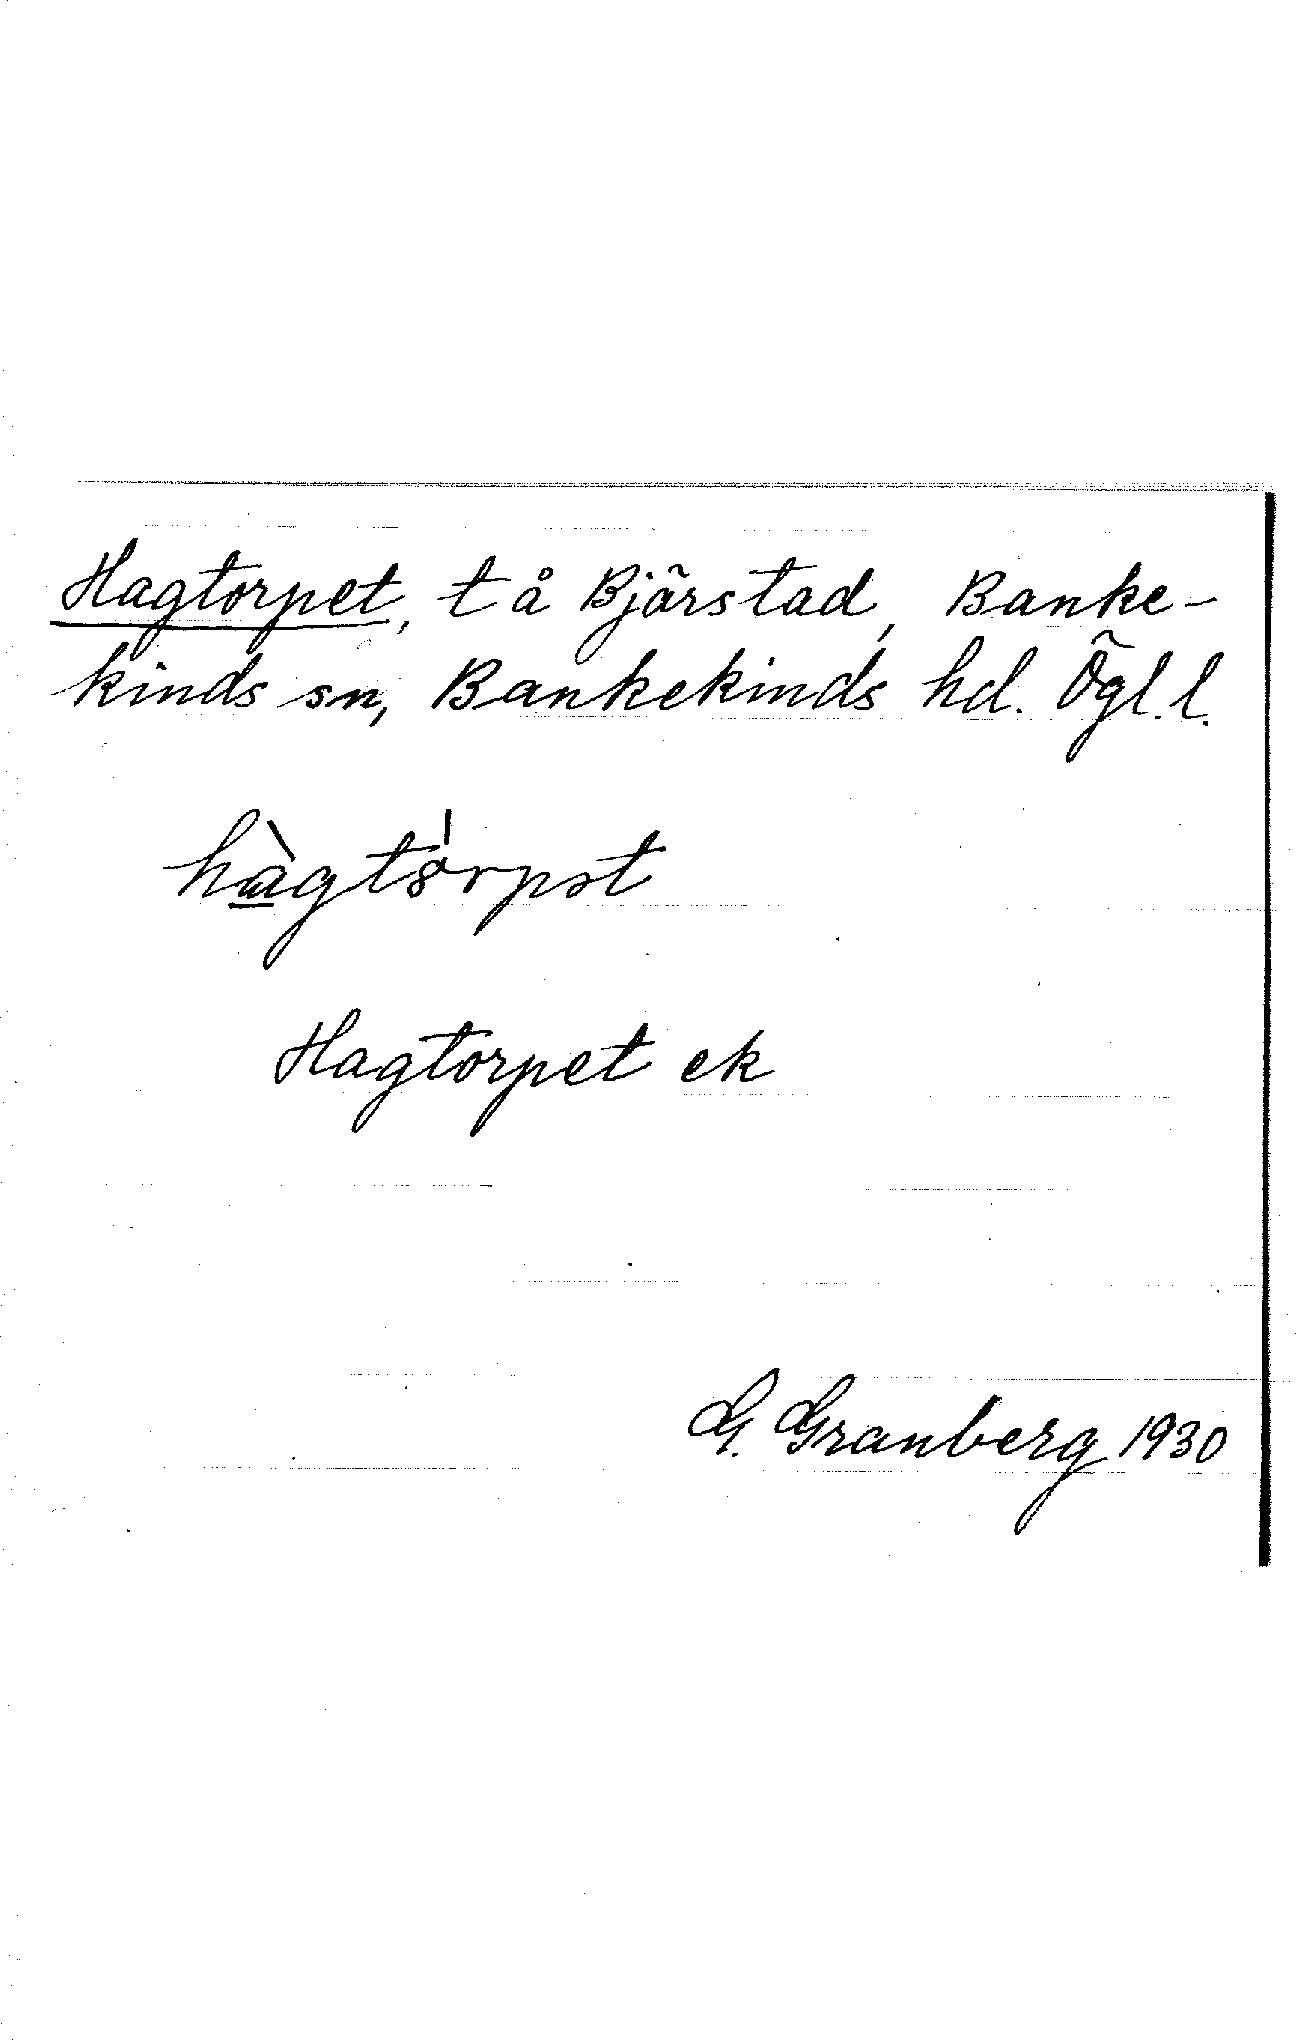 Hagtorpet, t å Bjärstad, Banke-
kinds sn, Bankekinds hd. Ögl. l.
hàgtơrpət
Hagtorpet ek
G. Granberg 1930